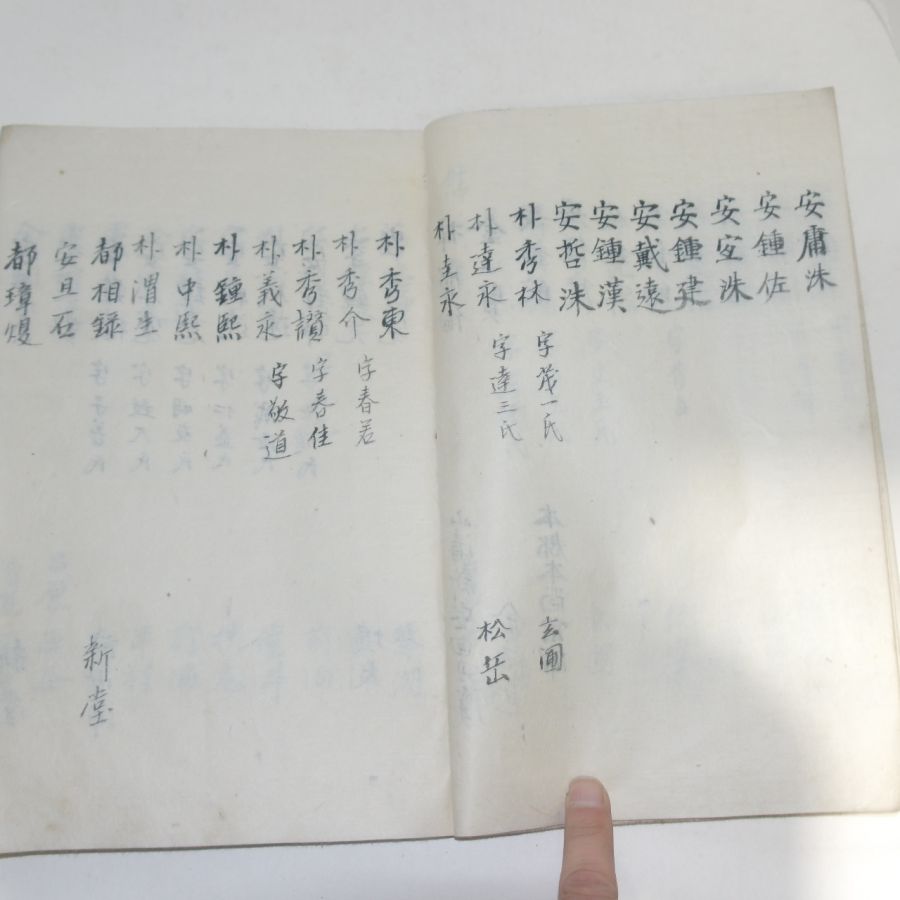 安庸洙
安鍾佐
安宖洙
安鍾建
安戴遠
安鍾漢
安哲洙
朴秀林 字茂一氏 玄圃
朴達永 字達三氏 松岳
朴圭永
朴秀東
朴秀介 字春若
朴秀讚 字春佳
朴義永 字敬道
朴鍾熙
朴中熙
朴渭生
都相録 新堂
安且石
都璋熳